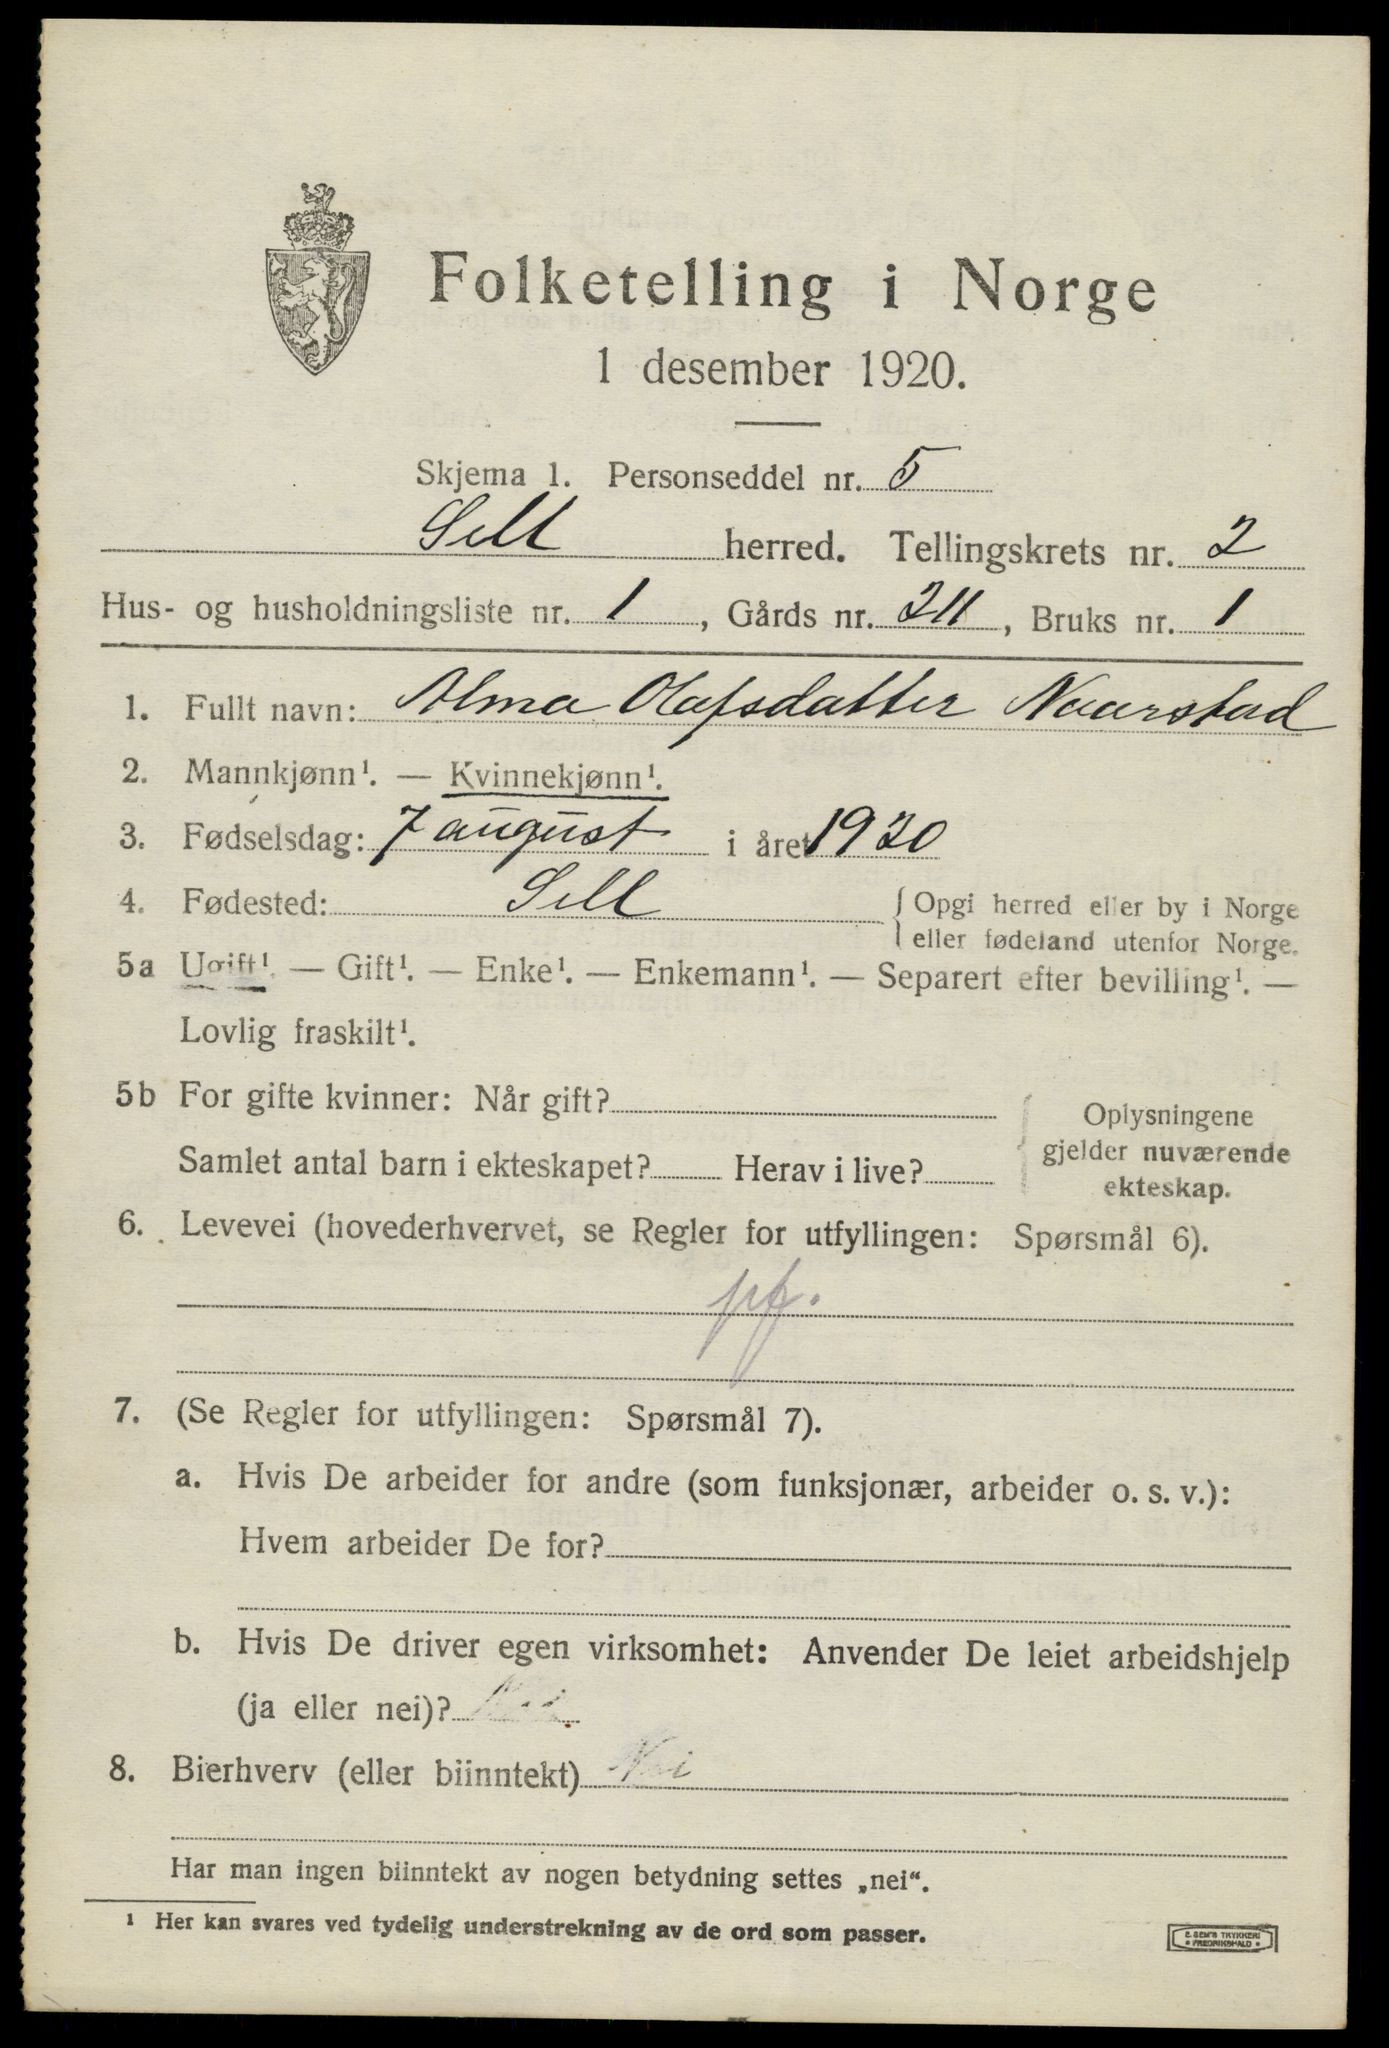 Folketelling i Norge
1 desember 1920.
Skjema 1. Personseddel nr. 5
Sell herred. Tellingskrets nr. 2
Hus- og husholdningsliste nr. 1, Gårds nr. 211, Bruks nr. 1
1. Fullt navn: Alma Olafsdatter Naarstad
2. Mannkjønn¹. — Kvinnekjønn¹.
3. Fødselsdag: 7 august i året 1920
4. Fødested: Sell {Opgi herred eller by i Norge
eller fødeland utenfor Norge.
5a Ugift¹. — Gift¹. — Enke¹. — Enkemann¹. — Separert efter bevilling¹. —
Lovlig fraskilt¹.
5b For gifte kvinner: Når gift?
Samlet antal barn i ekteskapet? Herav i live?
Oplysningene
gjelder nuværende
ekteskap.
6. Levevei (hovederhvervet, se Regler for utfyllingen: Spørsmål 6).
pf.
7. (Se Regler for utfyllingen: Spørsmål 7).
a. Hvis De arbeider for andre (som funksjonær, arbeider o. s. v.):
Hvem arbeider De for?
b. Hvis De driver egen virksomhet: Anvender De leiet arbeidshjelp
(ja eller nei)? Nei
8. Bierhverv (eller biinntekt) Nei
Har man ingen biinntekt av nogen betydning settes „nei“.
¹ Her kan svares ved tydelig understrekning av de ord som passer.
E. SEM'S TRYKKERI
• FREDRIKSHALD •